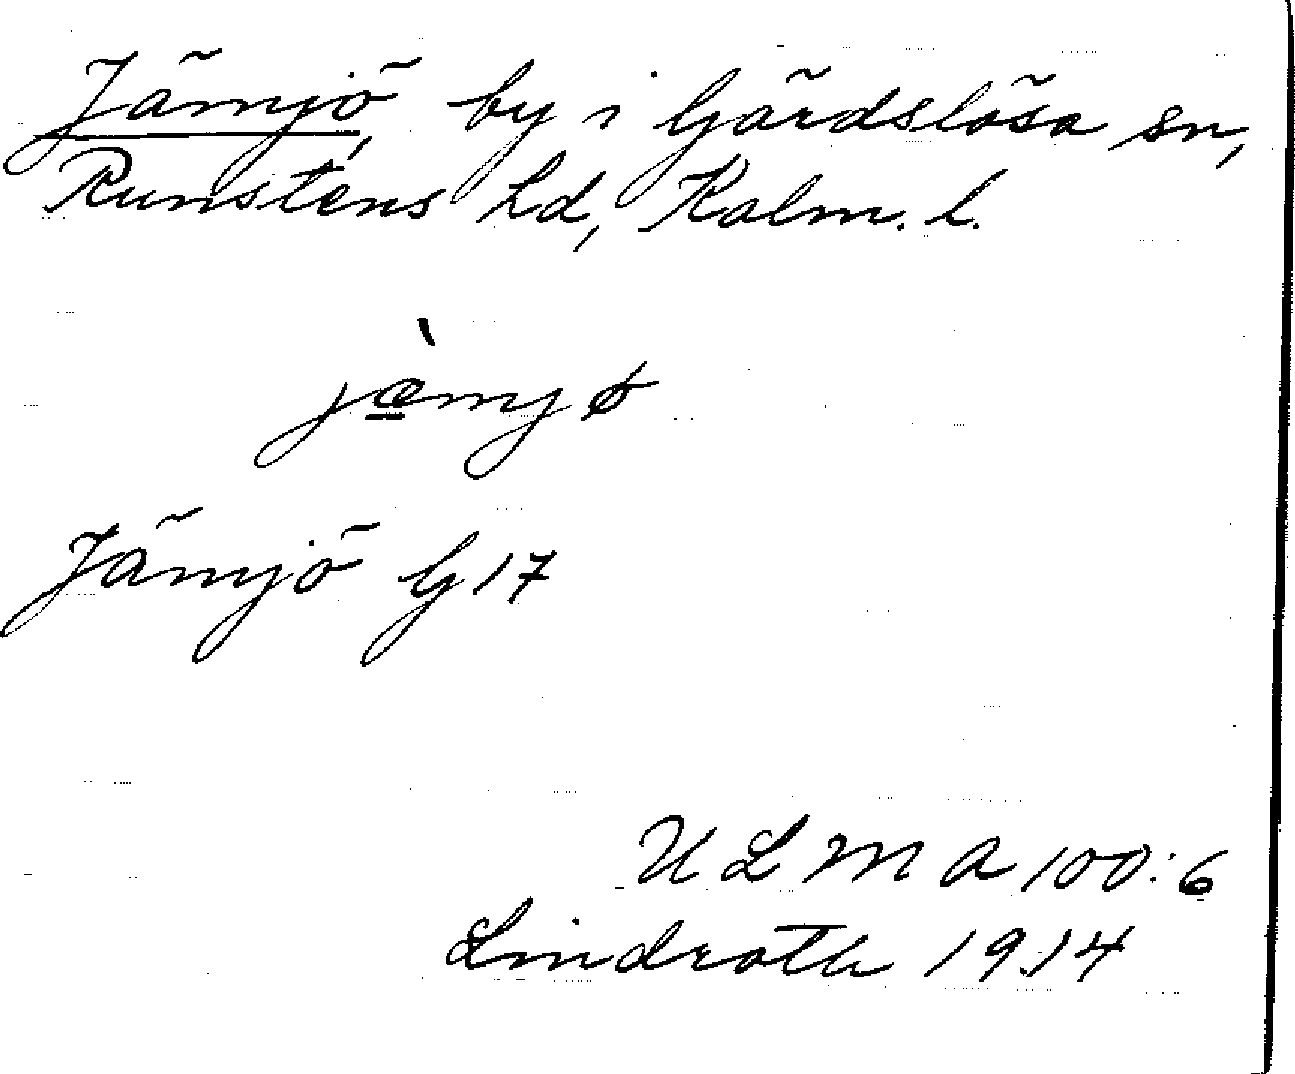 Jämjö, by i Gärdslösa sn,
Runstens hd, Kalm. l.
jæ̀mjø
Jämjö G 17
ULMA 100:6
Lindroth 1914